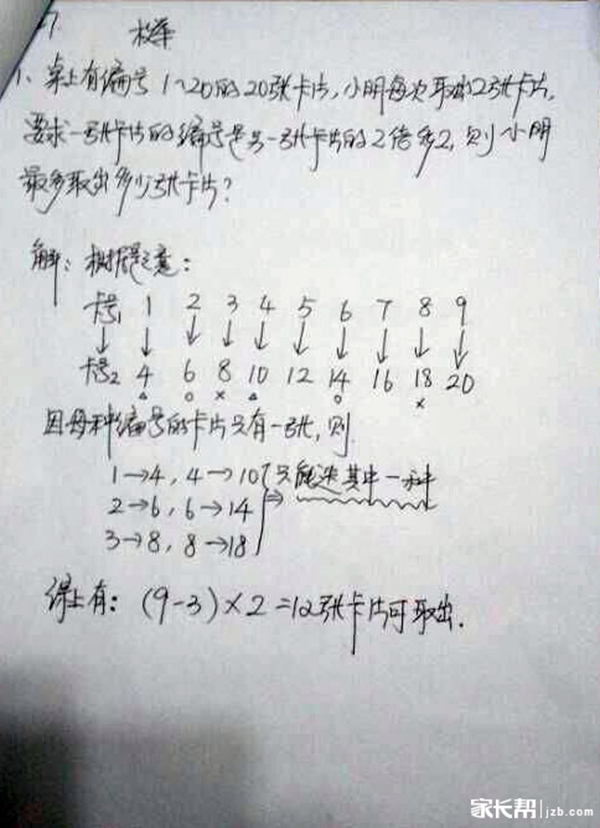 7. 枚举
1、桌上有编号1~20的20张卡片,小明每次取出2张卡片,
要求一张卡片的编号是另一张卡片的2倍多2,则小明
最多取出多少张卡片?
解: 根据题意:
卡号1 1 2 3 4 5 6 7 8 9
↓ ↓ ↓ ↓ ↓ ↓ ↓ ↓ ↓ ↓
卡号2 4 6 8 10 12 14 16 18 20
△ ○ × △ ○ ×
因每种编号的卡片只有一张,则
1→4, 4→10
2→6, 6→14 ⇒ 只能选其中一种
3→8, 8→18
综上有: (9-3)×2=12张卡片可取出.
家长帮 jzb.com